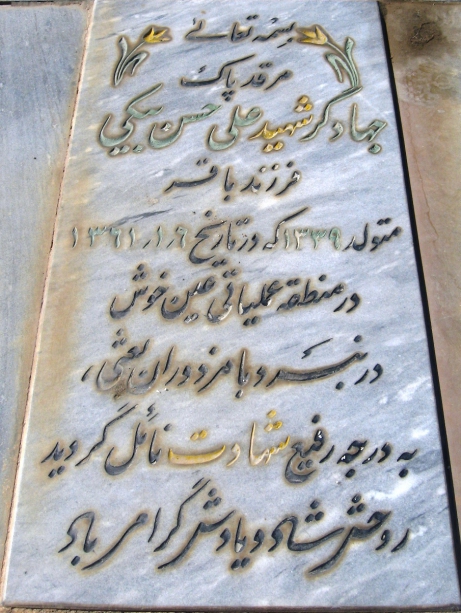 بسمه تعالی
مرقد پاک
جهادگر شهید علی حسن بیکی
فرزند باقر
متولد ۱۳۳۹ که در تاریخ ۱۳۶۱٫۱٫۹
در منطقه عملیاتی عین خوش
در نبرد با مزدوران بعثی،
به درجه رفیع شهادت نائل گردید
روحش شاد و یادش گرامی باد